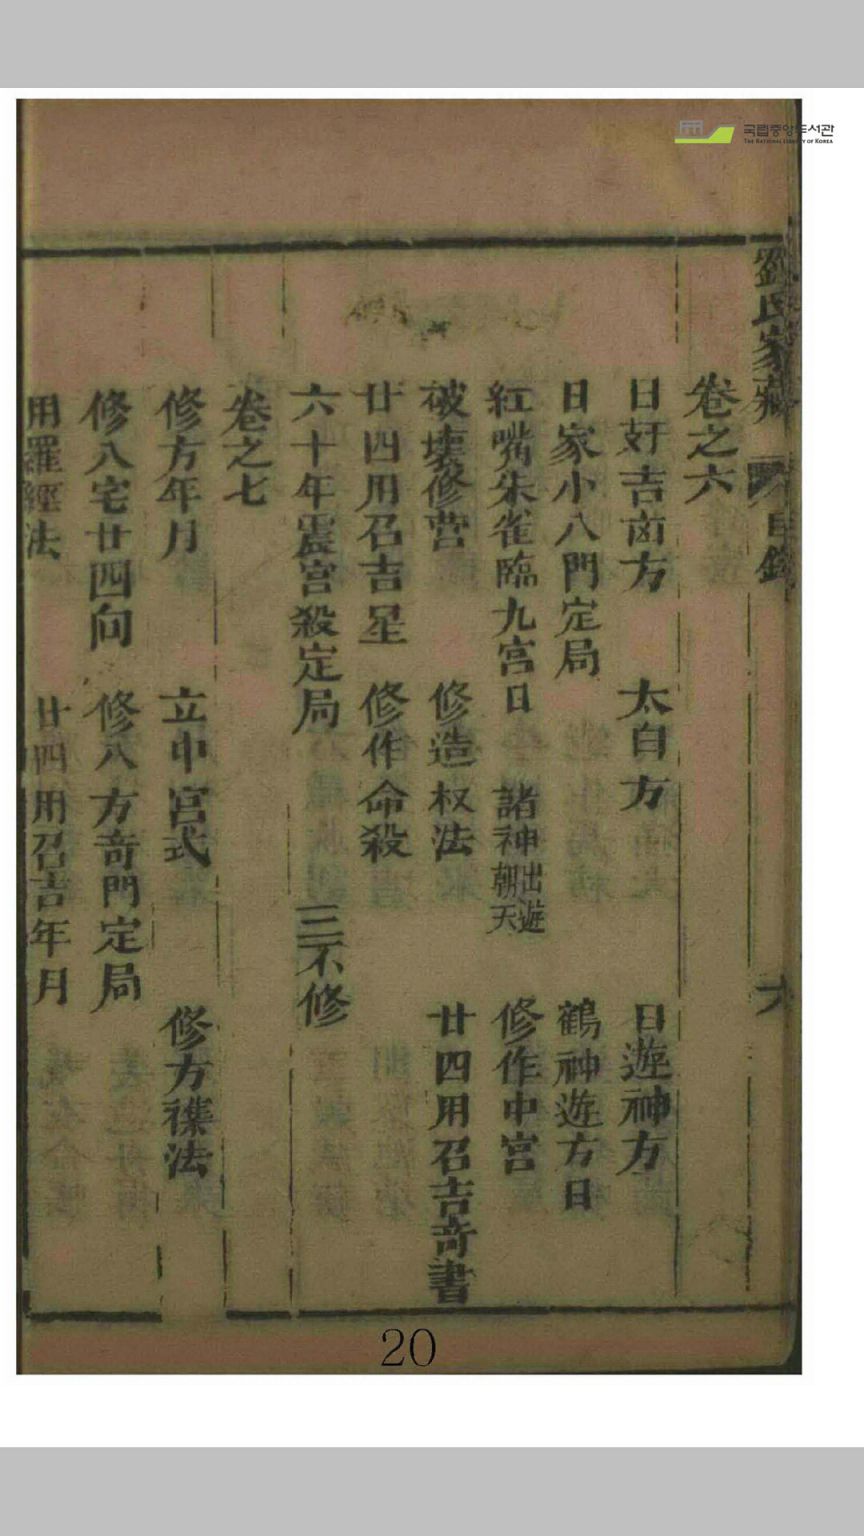 국립중앙도서관
THE NATIONAL LIBRARY OF KOREA
劉氏家藏 目錄 六
卷之六
日奸吉凶方 太白方 日遊神方
日家小八門定局 鶴神遊方日
紅嘴朱雀臨九宮日 諸神出遊朝天 修作中宮
破壞修營 修造权法 廿四用召吉奇書
廿四用召吉星 修作命殺
六十年震宮殺定局 三不修
卷之七
修方年月 立中宮式 修方禳法
修八宅廿四向 修八方奇門定局
用羅經法 廿四用召吉年月
20